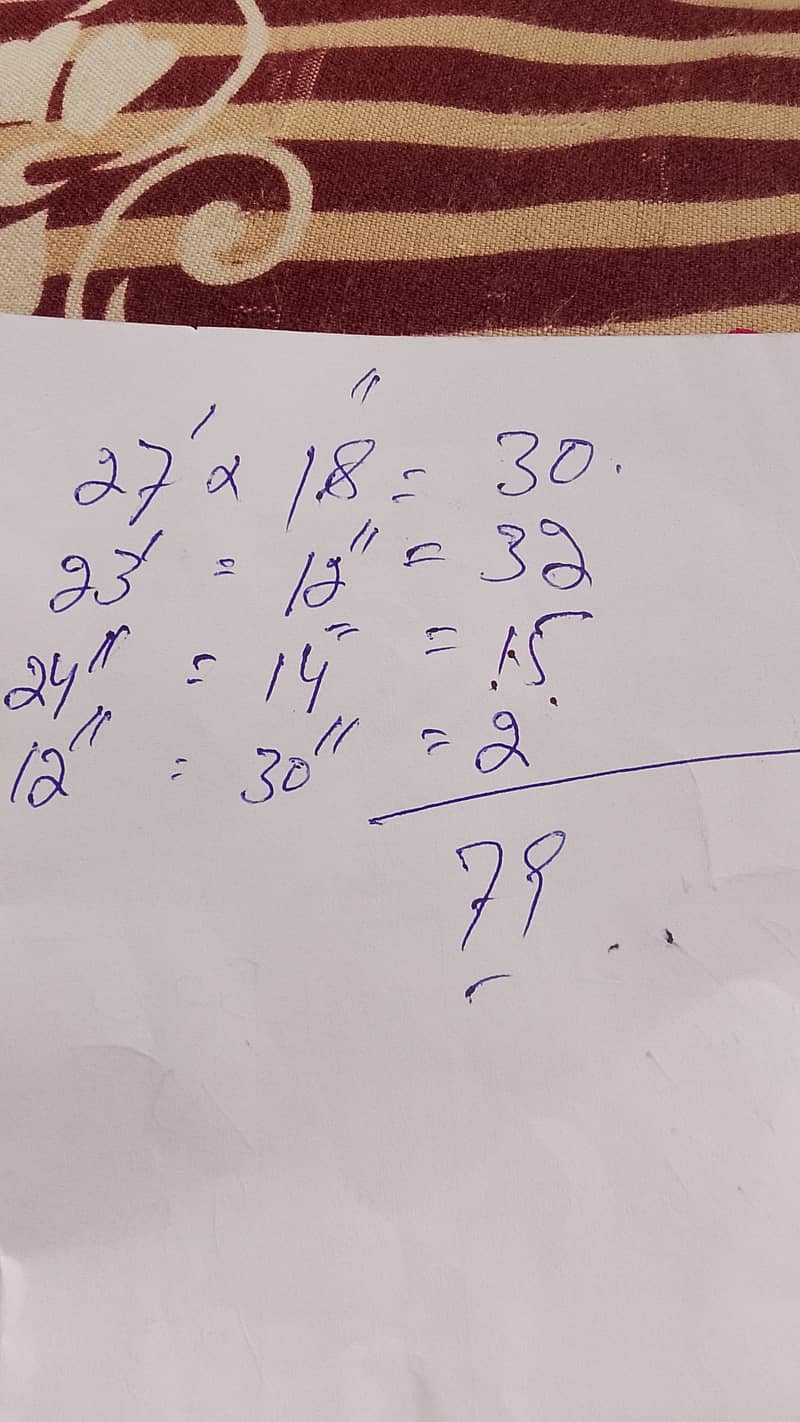 27' x 18" = 30.
23' = 12" = 32
24" = 14" = 15
12" = 30" = 2
79